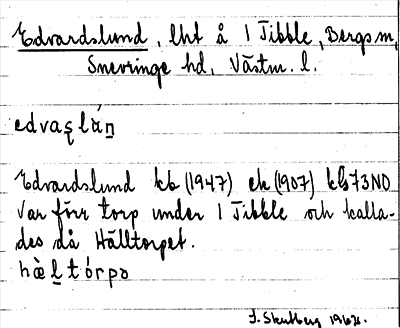 Edvardslund, lht å 1 Tibble, Bergs sn,
Snevringe hd, Västm. l.
edvaşlán
Edvardslund kb (1947) ek (1907) kbs73NO
Var förr torp under 1 Tibble och kalla-
des då Hälltorpet.
hὰḻtórpə
1967.